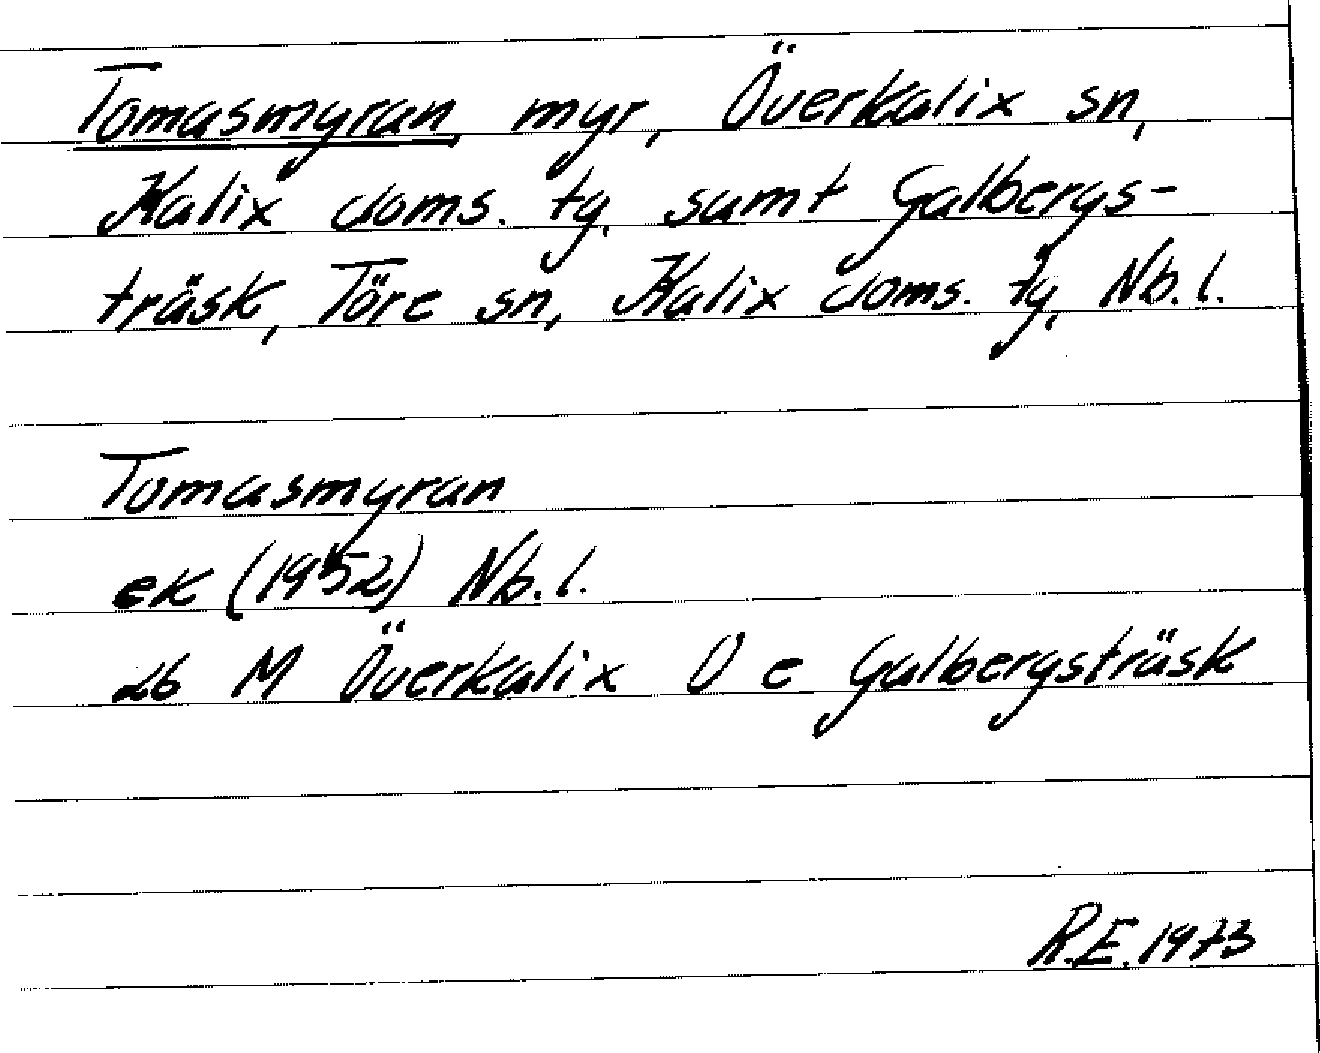 Tomasmyran, myr, Överkalix sn,
Kalix doms. tg, samt Galbergs-
träsk, Töre sn, Kalix doms. tg, Nb. l.
Tomasmyran
ek (1952) Nb. l.
26 M Överkalix O e Galbergsträsk
R.E. 1973